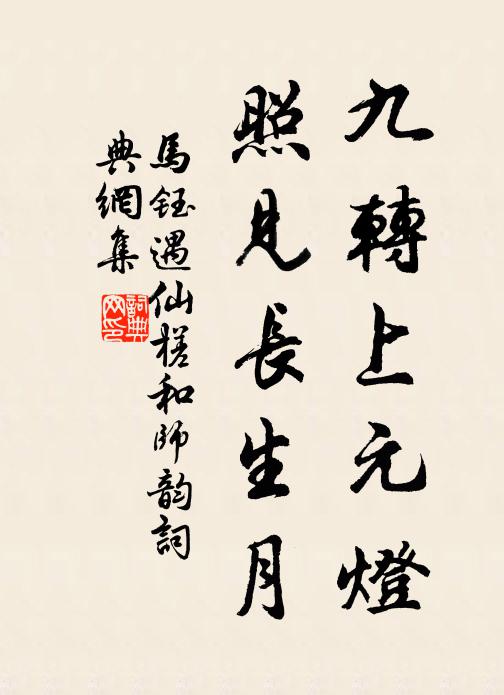 九轉上元燈
照見長生月
馬鈺遇仙槎和師韵詞
典網集
詞典網印